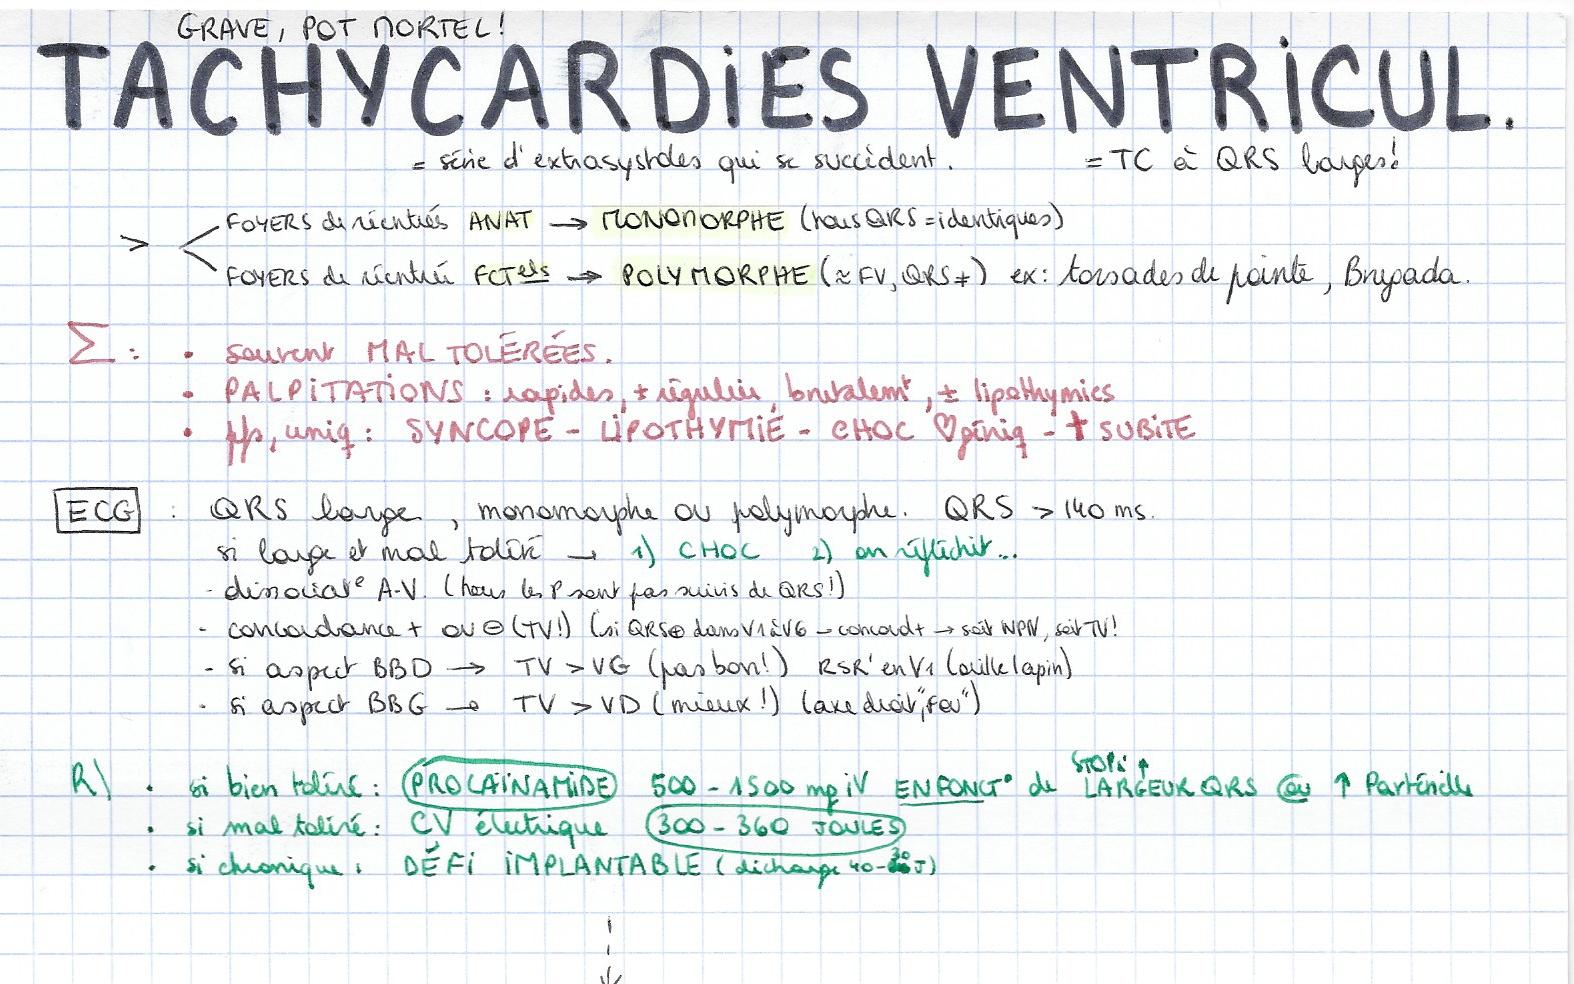 GRAVE, POT MORTEL!
TACHYCARDIES VENTRICUL.
= série d'extrasystoles qui se succèdent. = TC à QRS larges!
> FOYERS de réentrées ANAT → MONOMORPHE (tous QRS = identiques)
FOYERS de réentrée FCTels → POLYMORPHE (≈ FV, QRS ≠) ex: torsades de pointe, Brugada.
Σ : • souvent MAL TOLÉRÉES.
• PALPITATIONS : rapides, ± régulier, brutalemt, ± lipothymies
• pfs, uniq : SYNCOPE - LIPOTHYMIE - CHOC ♡géniq - † SUBITE
ECG : QRS large, monomorphe ou polymorphe. QRS > 140 ms.
si large et mal toléré → 1) CHOC 2) on réfléchit...
- dissociat° A-V. (tous les P sont pas suivis de QRS!)
- concordance + ou ⊖ (TV!) (si QRS⊕ dans V1 à V6 → concord+ → soit WPW, soit TV!
- si aspect BBD → TV > VG (pas bon!) RSR' en V1 (oreille lapin)
- si aspect BBG → TV > VD (mieux!) (axe droit, "Feu")
R\ • si bien toléré : PROCAÏNAMIDE 500 - 1500 mg iV EN FONCT° de STOP si ↑ LARGEUR QRS ou ↑ Partérielle
• si mal toléré : CV électrique 300 - 360 JOULES
• si chronique : DÉFI IMPLANTABLE (décharge 40-30 J)